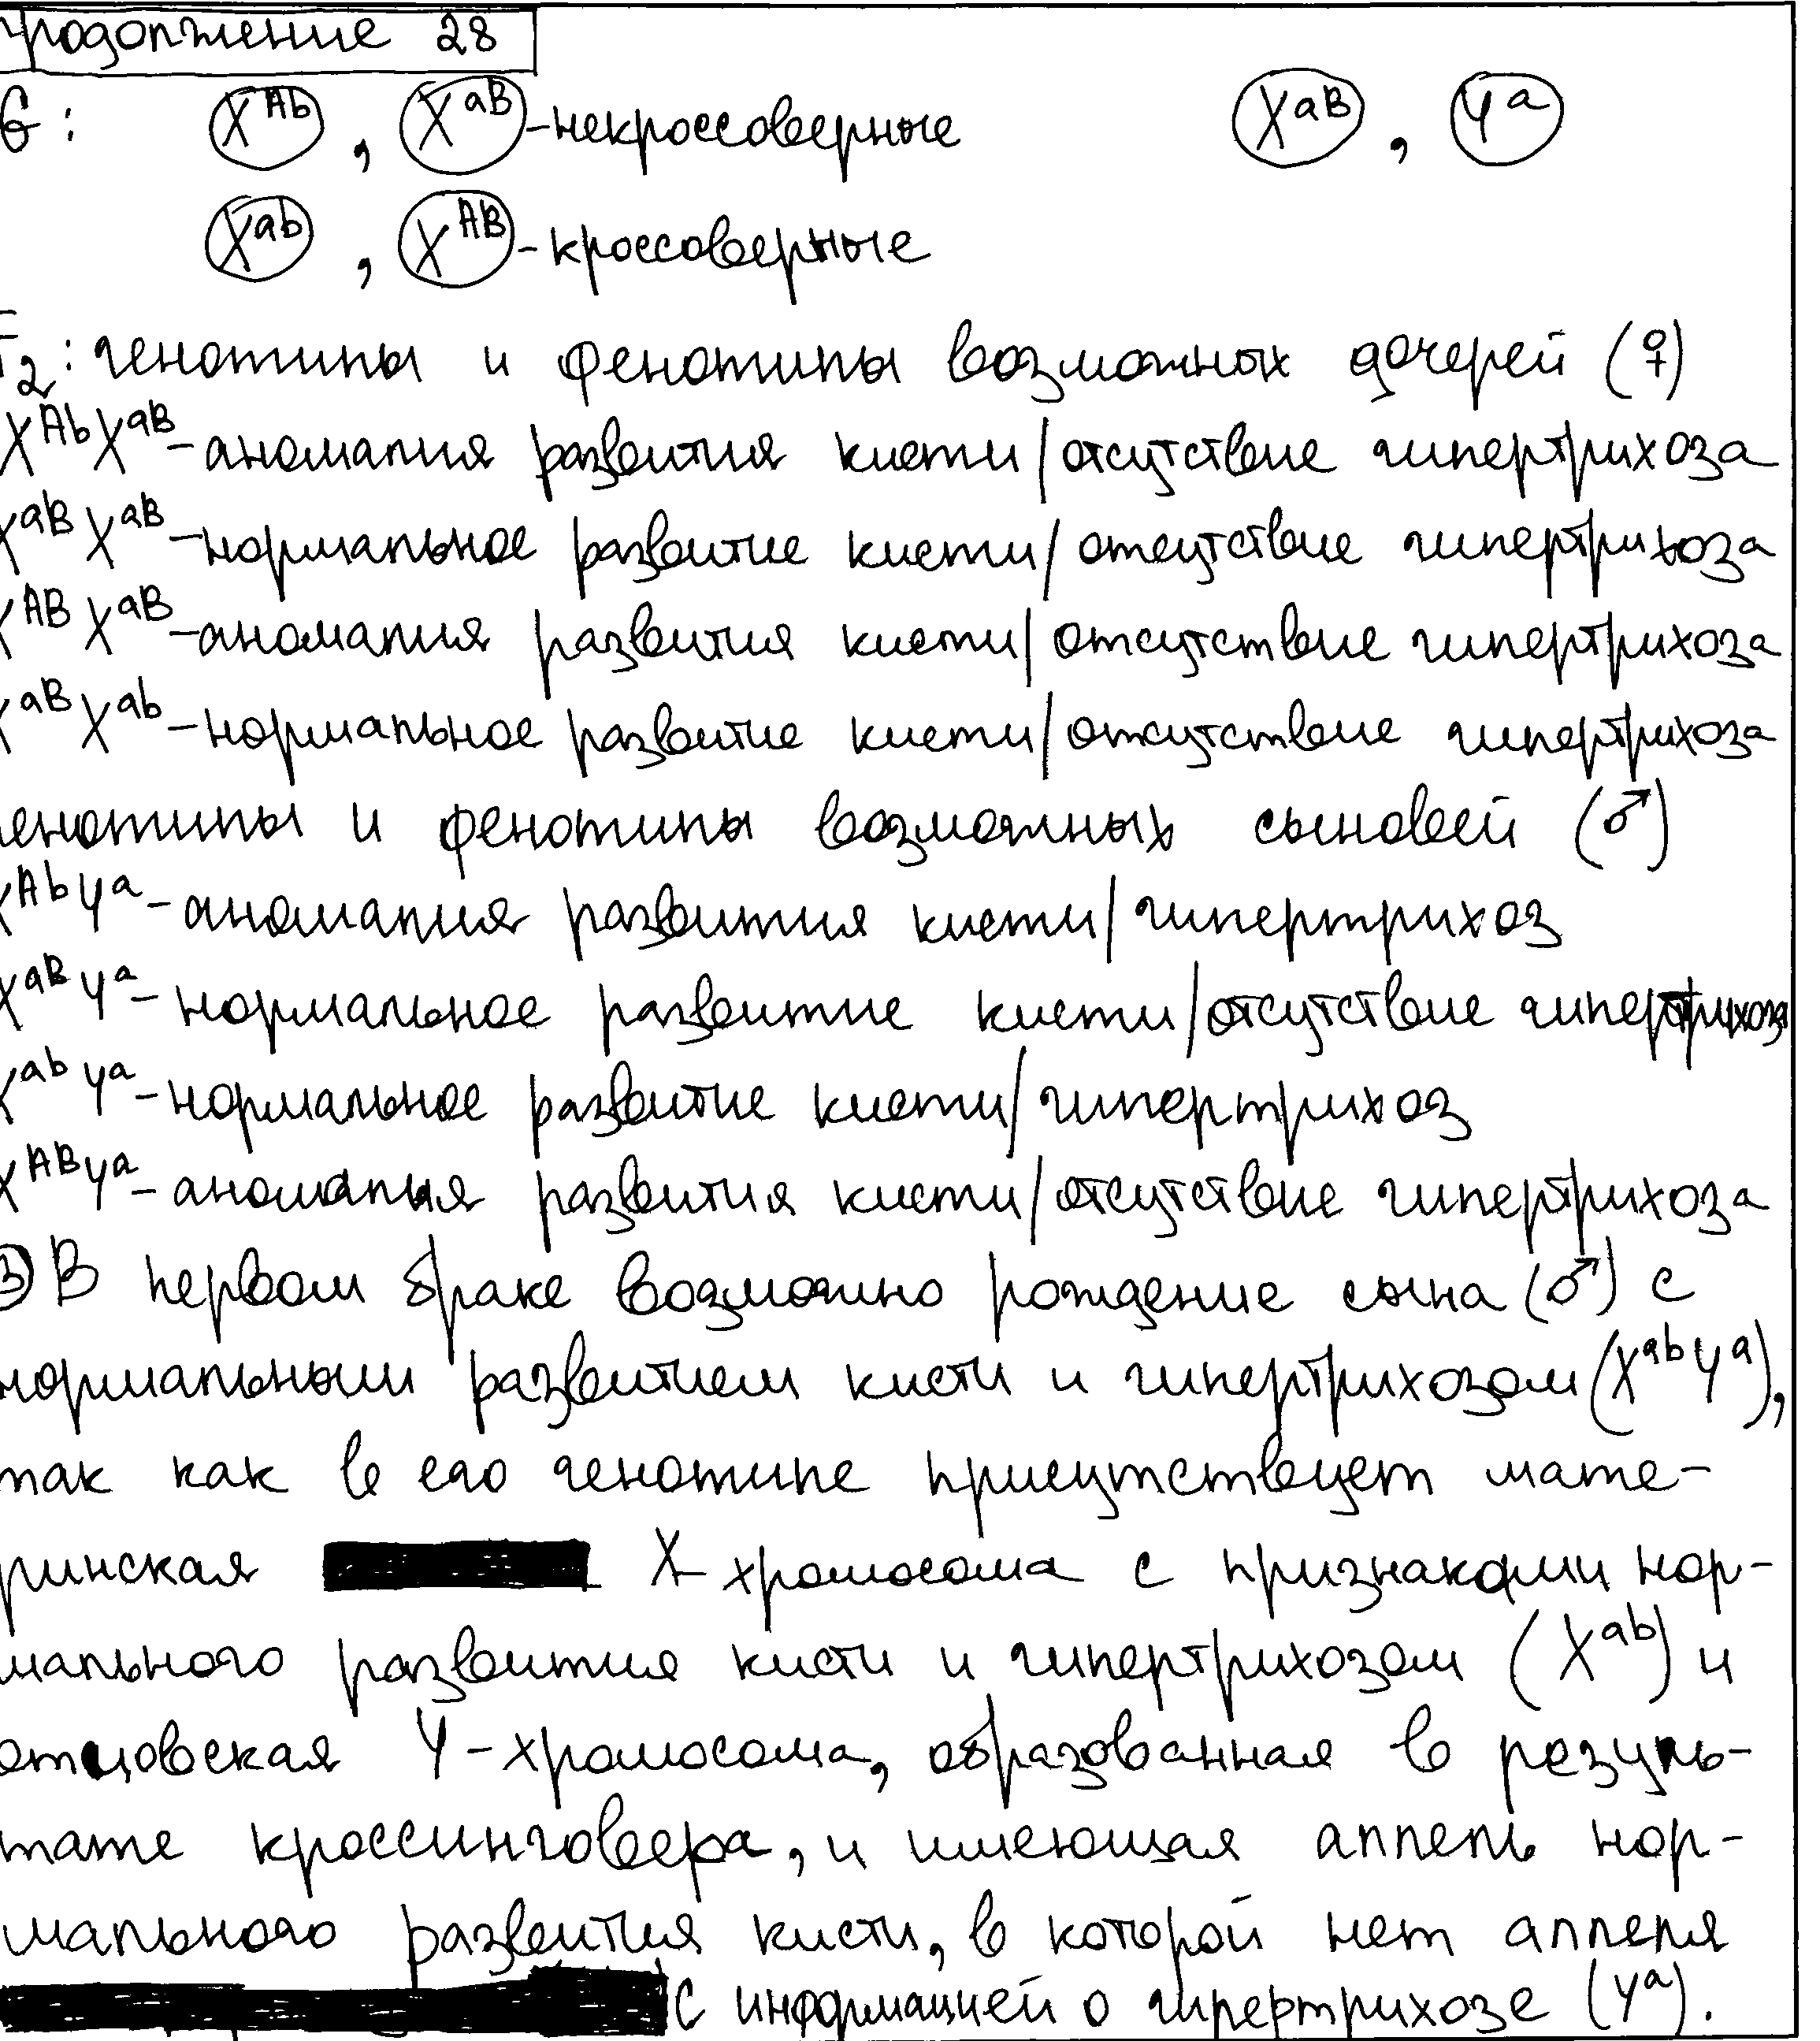 продолжение 28
G: X^Ab, X^aB -некроссоверные X^aB, Y^a
X^ab, X^AB -кроссоверные
F2: генотипы и фенотипы возможных дочерей (♀)
X^Ab X^aB -аномалия развития кисти/отсутствие гипертрихоза
X^aB X^aB -нормальное развитие кисти/отсутствие гипертрихоза
X^AB X^aB -аномалия развития кисти/отсутствие гипертрихоза
X^aB X^ab -нормальное развитие кисти/отсутствие гипертрихоза
генотипы и фенотипы возможных сыновей (♂)
X^Ab Y^a - аномалия развития кисти/гипертрихоз
X^aB Y^a - нормальное развитие кисти/отсутствие гипертрихоза
X^ab Y^a -нормальное развитие кисти/гипертрихоз
X^AB Y^a - аномалия развития кисти/отсутствие гипертрихоза
3) В первом браке возможно рождение сына (♂) с
нормальным развитием кисти и гипертрихозом (X^ab Y^a),
так как в его генотипе присутствует мате-
ринская X-хромосома с признаками нор-
мального развития кисти и гипертрихозом (X^ab) и
отцовская Y-хромосома, образованная в резуль-
тате кроссинговера, и имеющая аллель нор-
мального развития кисти, в которой нет аллеля
с информацией о гипертрихозе (Y^a).